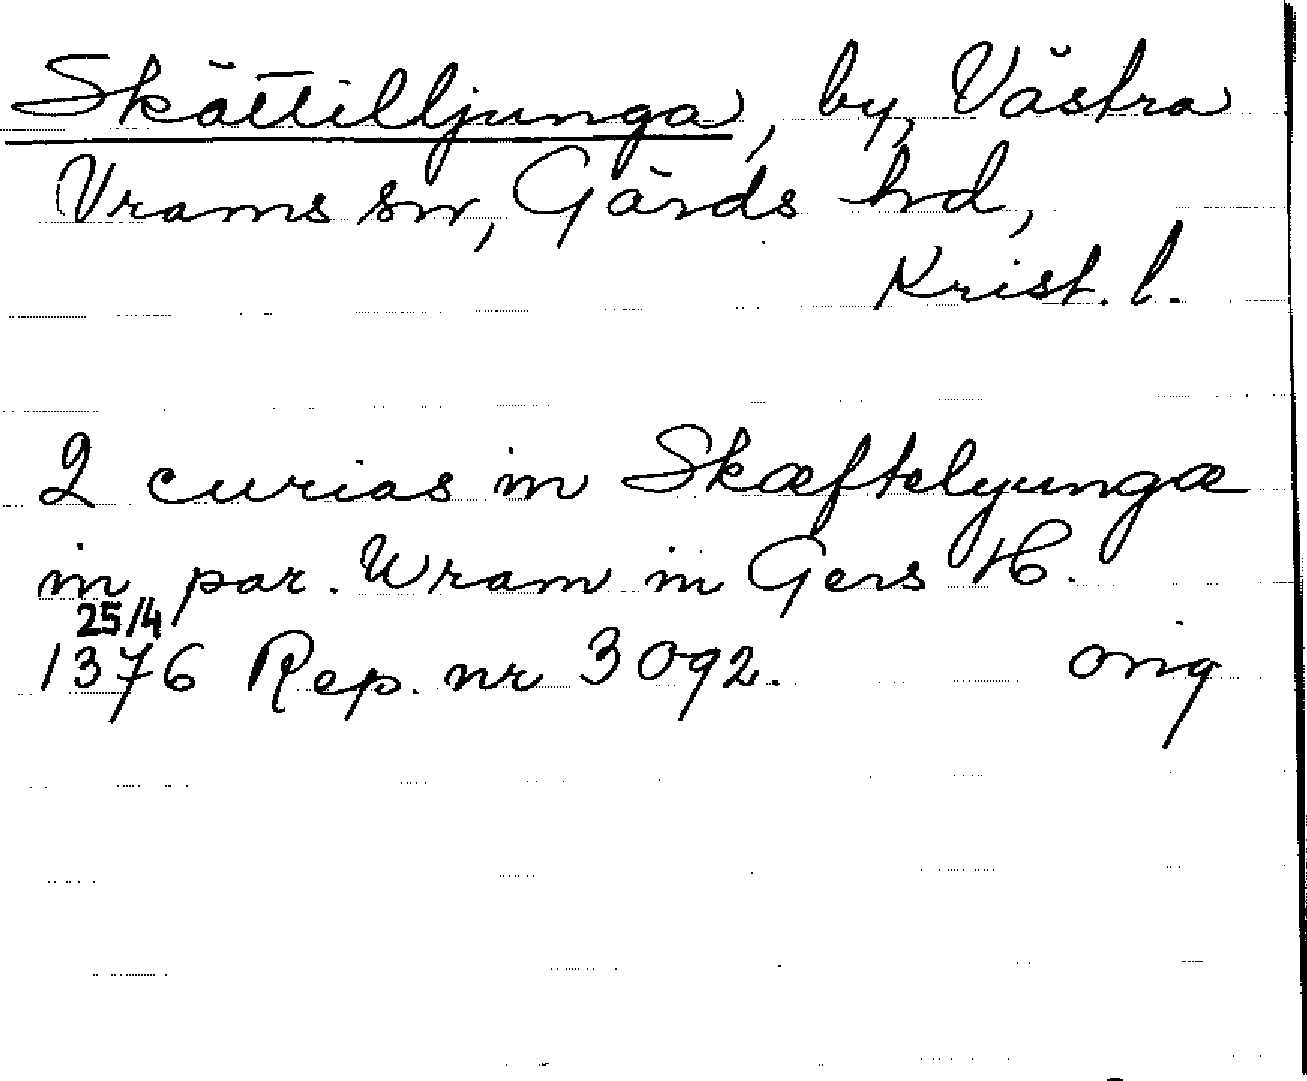 Skättilljunga, by, Västra
Vrams sn, Gärds hd,
Krist. l.
2 curias in Skæftelyungæ
in par. Wram in Gers H.
25/4
1376 Rep. nr 3092. orig